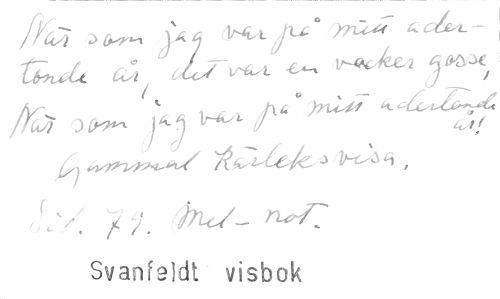 När som jag var på mitt ader-
tonde år, det var en vacker gosse,
När som jag var på mitt adertonde
år!
Gammal kärleksvisa.
Sid. 79. Mel-not.
Svanfeldt visbok